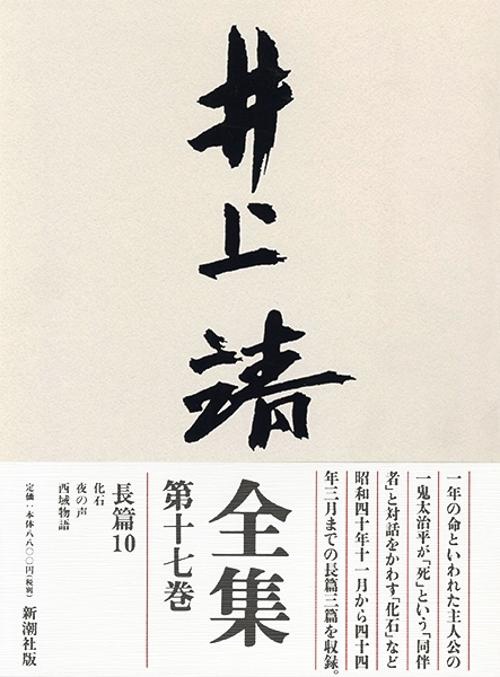 井上靖
全集
第十七巻
一年の命といわれた主人公の
一鬼太治平が「死」という「同伴
者」と対話をかわす「化石」など
昭和四十年十一月から四十四
年三月までの長篇三篇を収録。
長篇10
化石
夜の声
西域物語
定価：本体八八〇〇円（税別）
新潮社版